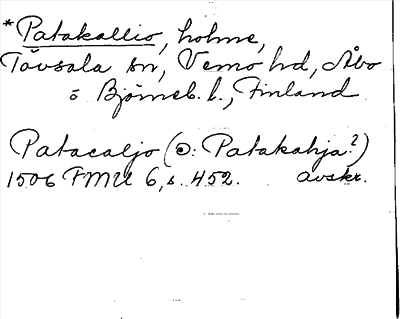 *Patakallio, holme,
Tövsala sn, Vemo hd, Åbo
o Björneb. l., Finland
Patacaljo (ɔ: Patakahja?)
1506 FMU 6, s. 452. avskr.